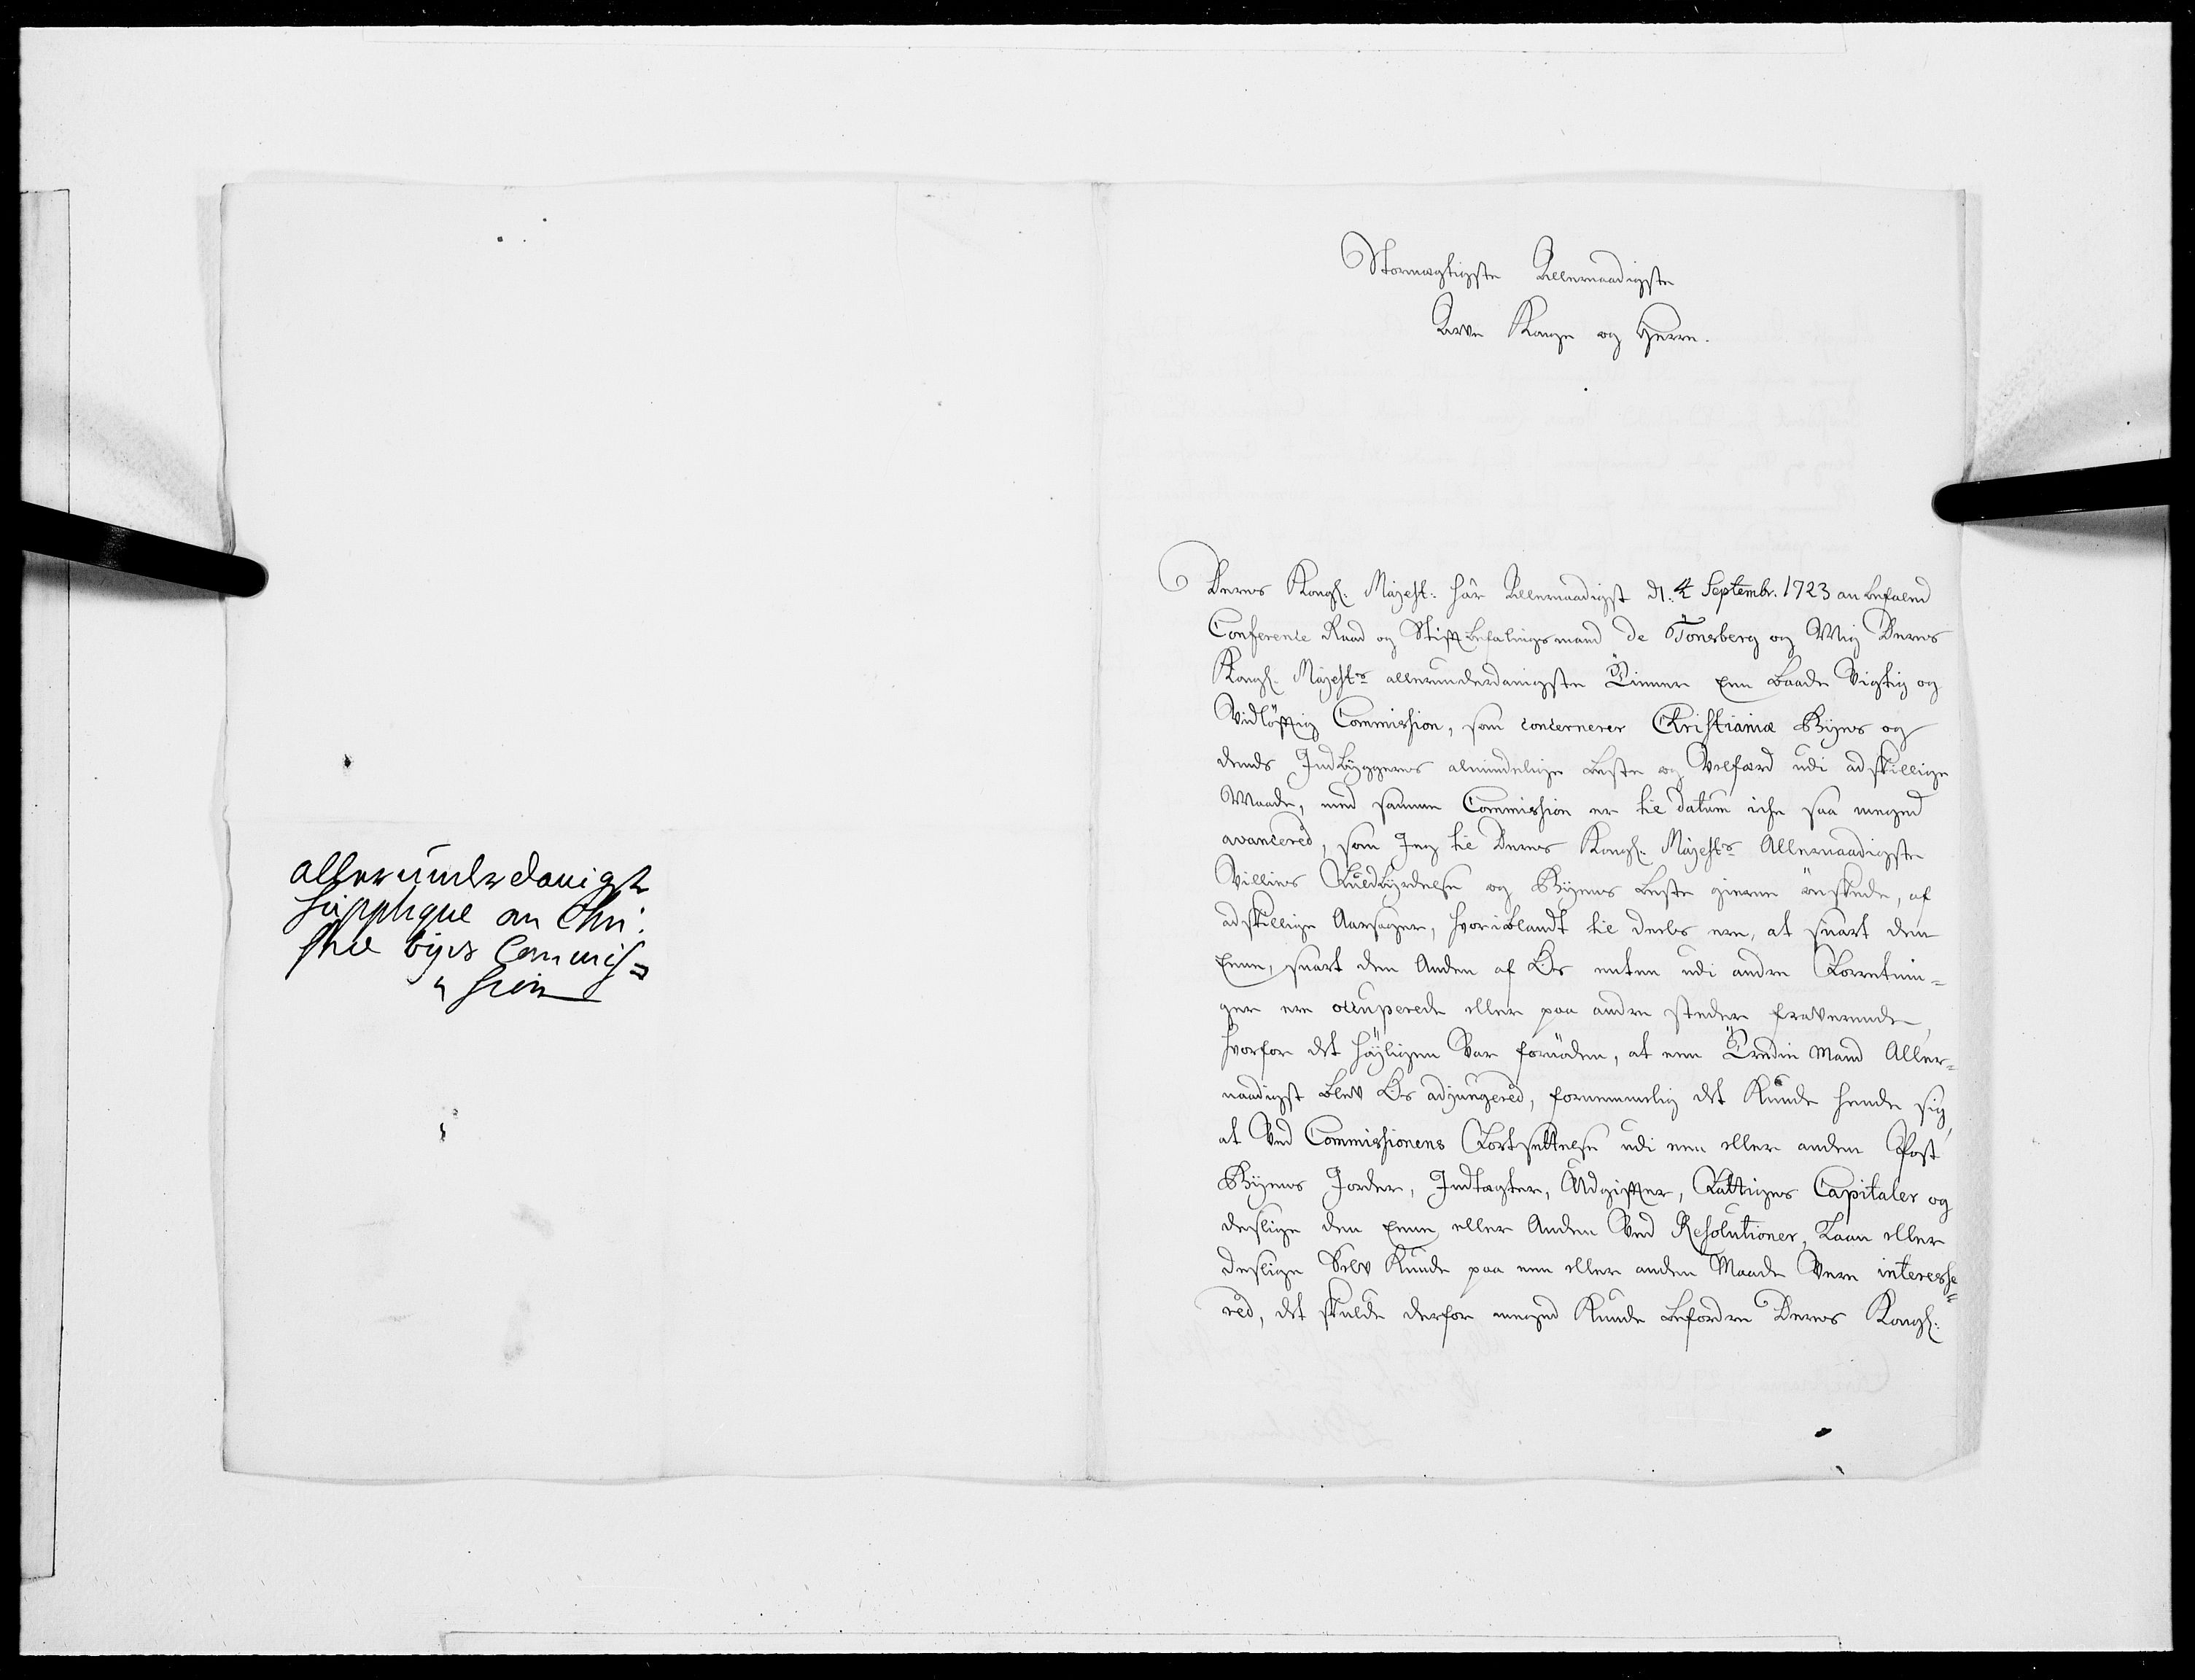 allerunderdanigste
supplique an Chri:
stiæ byes Commis=
sion
Stormægtigste Allernaadigste
Arve Konge og Herre.
Deres Kongl. Majest: hâr Allernaadigst d. 4 Septembr. 1723 an befaled
Conference Raad og Stift befalingsmand de Tonsberg og Mig Deres
Kongl. Majests allerunderdanigste Tienner Een baade Vigtig og
Vidløftig Commission, som concernerer Christianiæ Byes og
dends Indbyggeres almindelige beste og Velfærd udi adskillige
Maade, med samme Commission er til datum iche saa meged
avancered, som Jeg til Deres Kongl. Majests Allernaadigste
Villies Fuldbyrdelse og Byens beste gierne ønskede, af
adskillige Aarsager, hvoriblandt til deels ere, at snart den
Eene, snart den Anden af Os enten udi andre Forretnin=
ger ere occuperede eller paa andre steder fraværende,
hvorfor det høyligen var fornøden, at een Tredie Mand Aller=
naadigst blev Os adjungered, fornemmelig det Kunde hende sig,
at ved Commissionens Fortsettelse udi een eller anden Post
Byens Jorder, Indtægter, Udgifter, Fattiges Capitaler og
deslige den Eene eller Anden ved Resolutioner, Laan eller
deslige Selv Kunde paa een eller anden Maade Være interesse=
red, det skulde derfor meged Kunde befordre Deres Kongl: